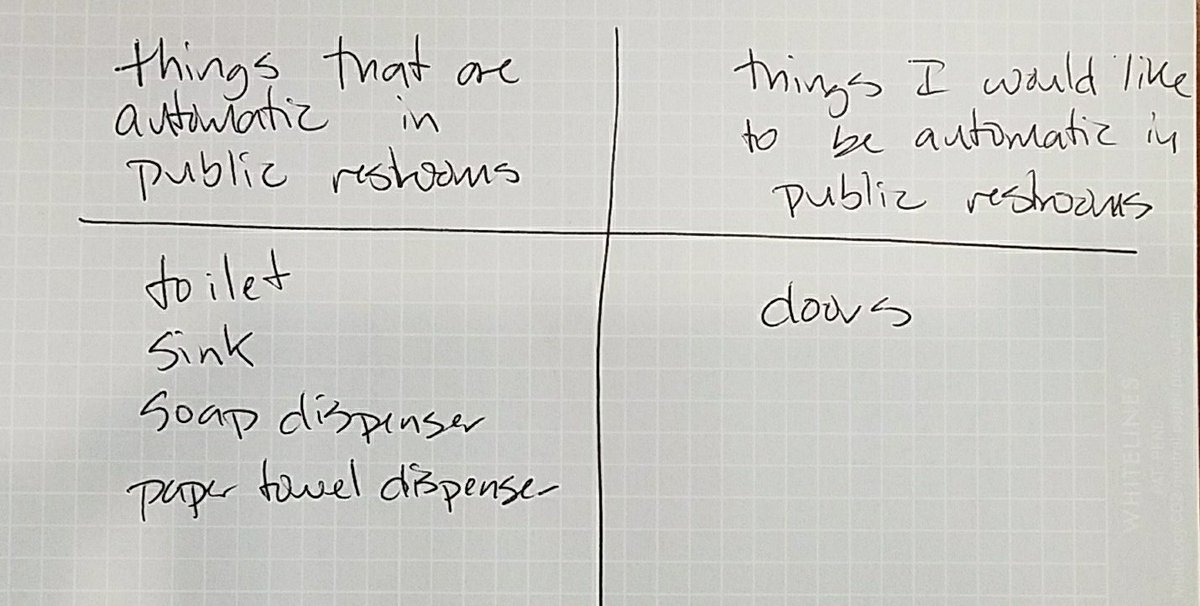 things that are
automatic in
public restrooms
things I would like
to be automatic in
public restrooms
toilet
sink
soap dispenser
paper towel dispenser
doors
WHITELINES